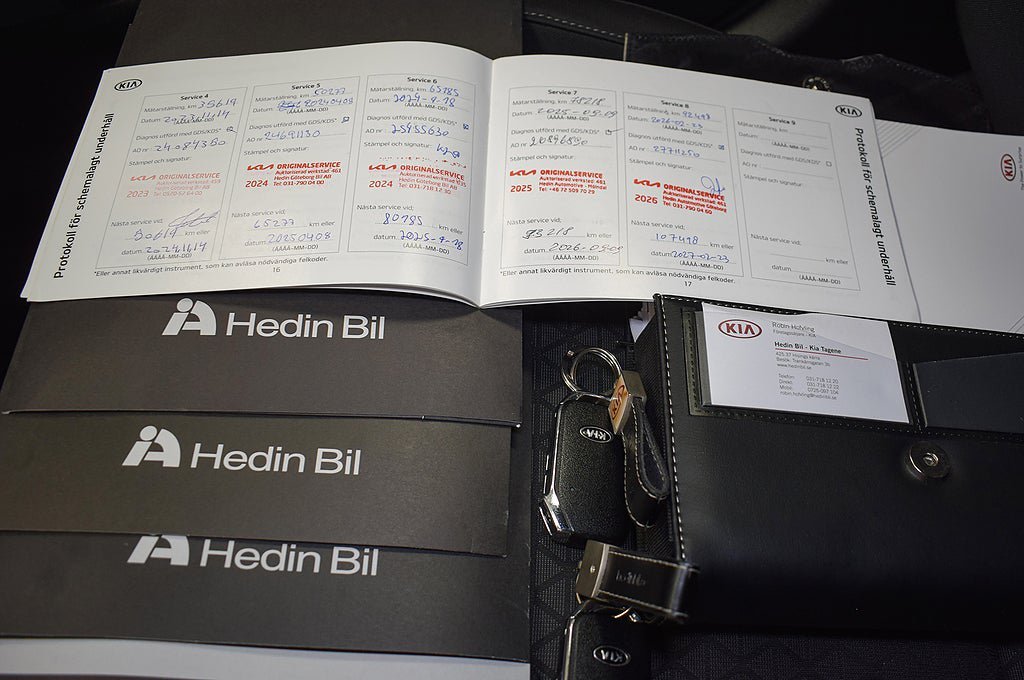 KIA
Protokoll för schemalagt underhåll
Service 4
Mätarställning, km 35619
Datum
(ÅÅÅÅ-MM-DD)
Diagnos utförd med GDS/KDS*
AO nr 24084350
Stämpel och signatur:
KIA ORIGINALSERVICE
2023
Nästa service vid:
km eller
datum 20241114
(ÅÅÅÅ-MM-DD)
Service 5
Mätarställning, km 50277
Datum 20240408
(ÅÅÅÅ-MM-DD)
Diagnos utförd med GDS/KDS*
AO nr 24691130
Stämpel och signatur:
KIA ORIGINALSERVICE
Auktoriserad verkstad: 461
Hedin Göteborg Bil AB
2024 Tel: 031-790 04 00
Nästa service vid:
65277 km eller
datum 20250408
(ÅÅÅÅ-MM-DD)
Service 6
Mätarställning, km 65185
Datum 2024-9-18
(ÅÅÅÅ-MM-DD)
Diagnos utförd med GDS/KDS*
AO nr 25955630
Stämpel och signatur:
KIA ORIGINALSERVICE
Hedin Göteborg Bil AB
2024 Tel: 031-718 12 30
Nästa service vid:
80185 km eller
datum 2025-9-18
(ÅÅÅÅ-MM-DD)
*Eller annat likvärdigt instrument, som kan avläsa nödvändiga felkoder.
16
Service 7
Mätarställning, km 78218
Datum 2025-09-09
(ÅÅÅÅ-MM-DD)
Diagnos utförd med GDS/KDS*
AO nr
Stämpel och signatur:
KIA ORIGINALSERVICE
Auktoriserad verkstad: 461
Hedin Automotive - Mölndal
2025 Tel: +46 72 509 70 29
Nästa service vid:
93218 km eller
datum 2026-09-09
(ÅÅÅÅ-MM-DD)
Service 8
Mätarställning, km 92498
Datum 2026-02-23
(ÅÅÅÅ-MM-DD)
Diagnos utförd med GDS/KDS*
AO nr 27711250
Stämpel och signatur:
KIA ORIGINALSERVICE
Auktoriserad verkstad: 461
Hedin Automotive Göteborg
2026 Tel: 031-790 04 60
Nästa service vid:
107498 km eller
datum 2027-02-23
(ÅÅÅÅ-MM-DD)
Service 9
Mätarställning, km
Datum
(ÅÅÅÅ-MM-DD)
Diagnos utförd med GDS/KDS*
AO nr
Stämpel och signatur:
Nästa service vid:
km eller
datum
(ÅÅÅÅ-MM-DD)
*Eller annat likvärdigt instrument, som kan avläsa nödvändiga felkoder.
17
KIA
Protokoll för schemalagt underhåll
KIA
Hedin Bil
Hedin Bil
Hedin Bil
KIA
Robin Hofving
Företagssäljare - KIA
Hedin Bil - Kia Tagene
425 37 Hisings Kärra
Besök: Trankärrsgatan 3b
www.hedinbil.se
Telefon: 031-718 12 20
Direkt: 031-718 12 22
Mobil: 0725-097 104
robin.hofving@hedinbil.se
KIA
KIA
KIA